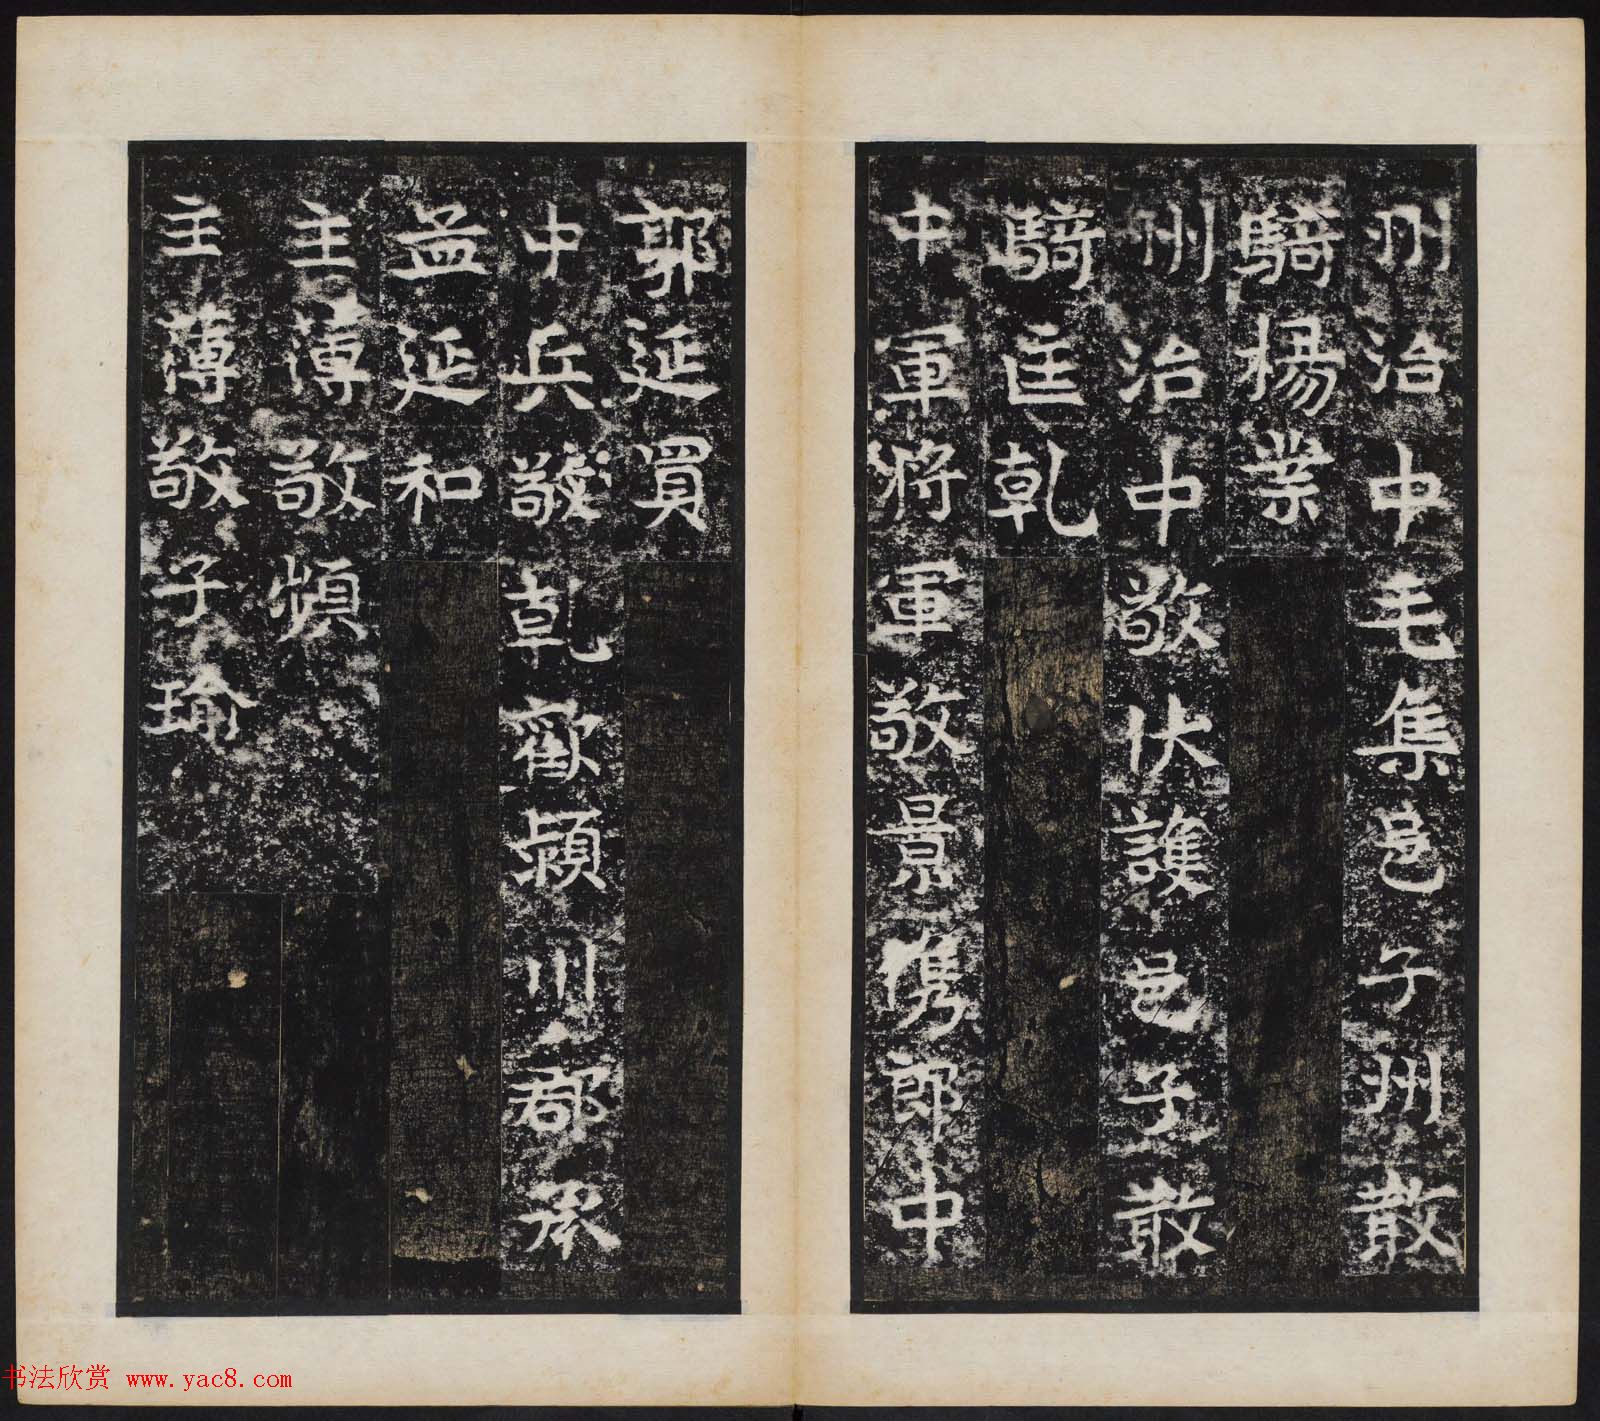 州治中毛集邑子州散
騎楊業
州治中敬伏護邑子散
騎匡乾
中軍將軍敬景儁郎中
郭延買
中兵敬乾歡潁川郡承
孟延和
主薄敬㷸
主薄敬子瑜
书法欣赏 www.yac8.com